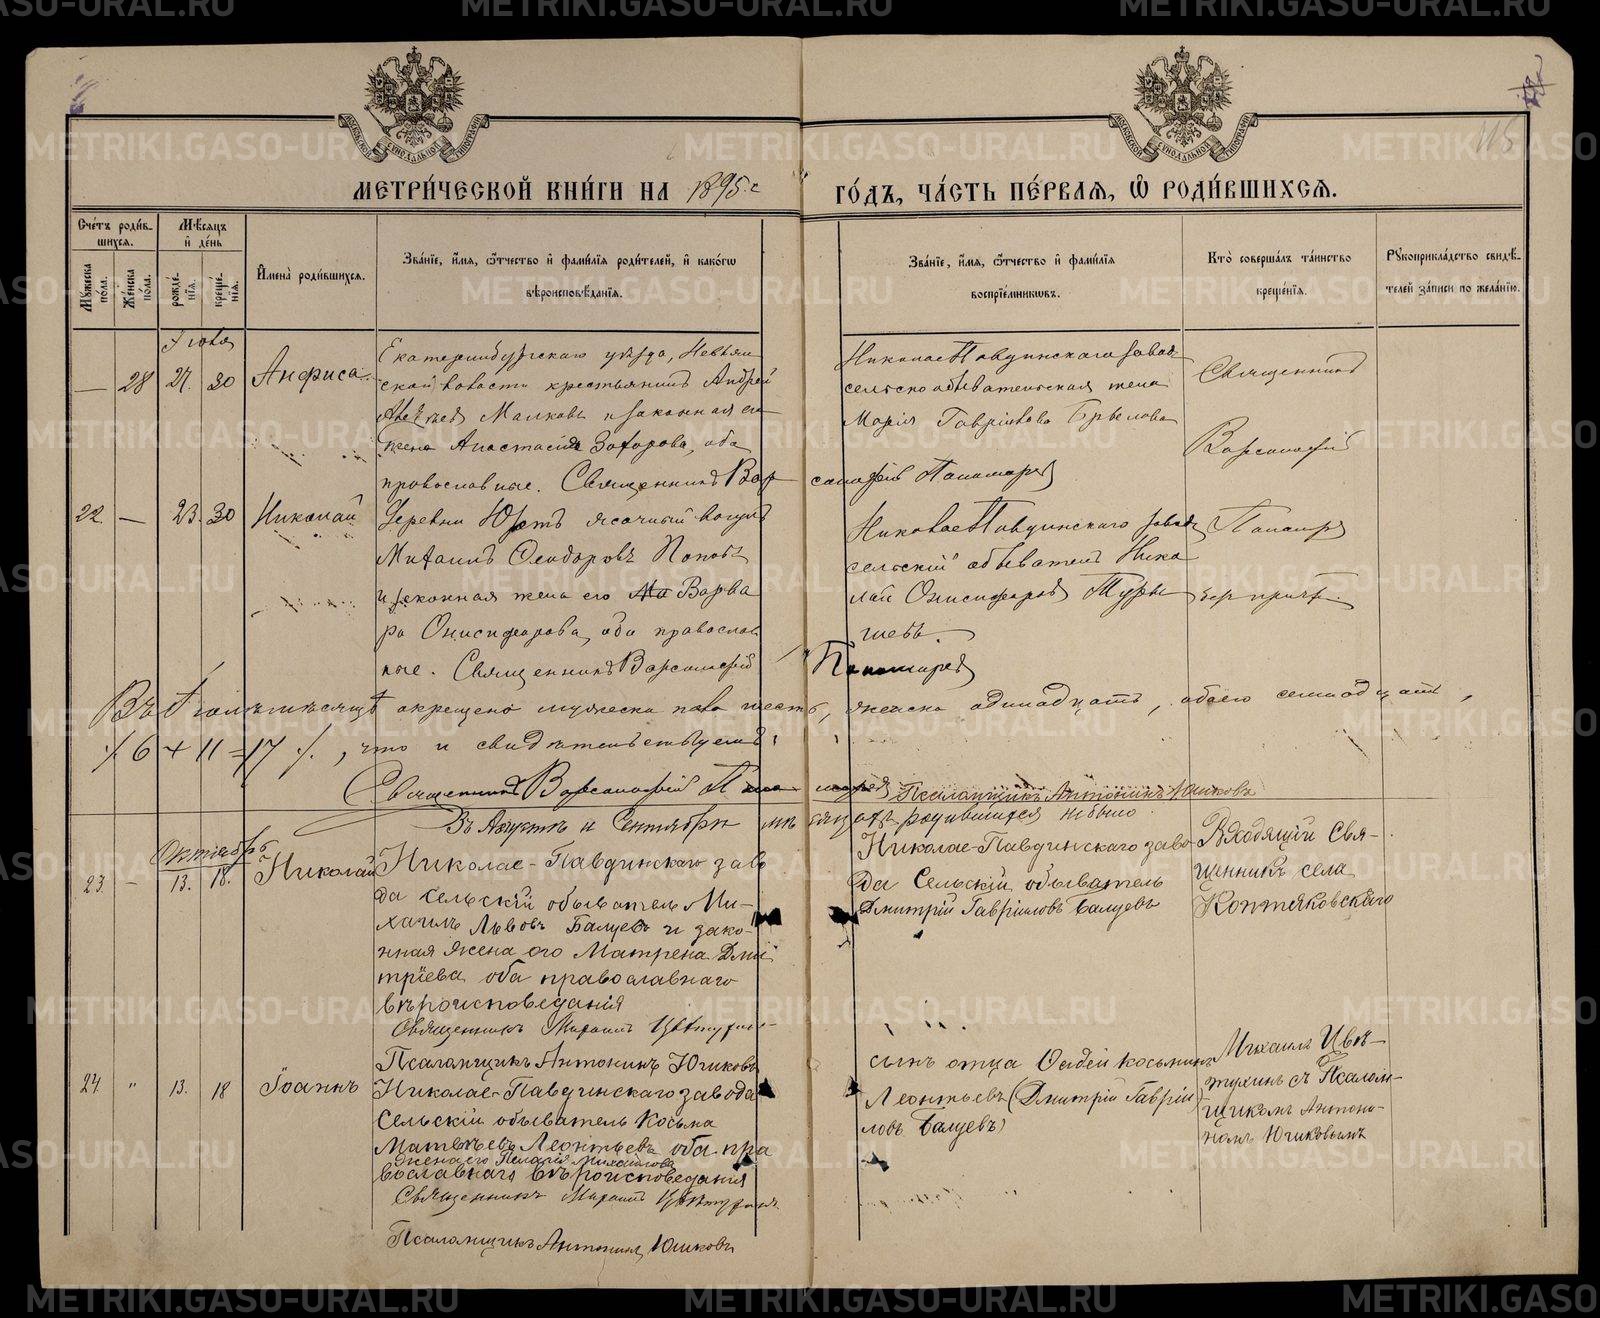 МЕТРИ́ЧЕСКОЙ КНИ́ГИ НА 1895 г ГО́ДЪ, ЧА́СТЬ ПЕ́РВАЯ, Ѽ РОДИ́ВШИХСЯ.
115
Сче́тъ роди́в-
шихся.
Мꙋ́жеска по́ла.
Же́нска по́ла.
Мѣ́сяцъ и де́нь
рожде́-нїя.
креще́-нїя.
Имена̀ роди́вшихся.
Зва́нїе, и́мя, ѻ́тчество и фами́лїя роди́телей, и како́гѡ
вѣроисповѣ́данїя.
Зва́нїе, и́мя, ѻ́тчество и фами́лїя
воспрїе́мникѡвъ.
Кто̀ соверша́лъ та́инство
креще́нїя.
Рꙋкоприкла́дство свидѣ́-
телей за́писи по жела́нїю.
Іюля
— 28 27. 30 Анфиса.
Екатеринбургскаго уѣзда, Невьян
ской волости крестьянинъ Андрей
Малковъ и законная его
жена Анастасія Захарова, оба
православные. Священникъ Вар
санофій Пономаревъ
Николае Павдинскаго завода
сельскообывательская жена
Марія Гавріилова
Священникъ
Варсонофій
22. — 23. 30 Николай
Деревни ясачный вогулъ
Михаилъ Ѳеодоровъ Поповъ
и законная жена его Варва
ра Онисифорова, оба православ
ные. Священникъ Варсанофій Пономаревъ
Николае Павдинскаго завода
сельскій обыватель Нико
лай Онисифоровъ
Пономар
въ Іюлѣ мѣсяцѣ окрещено мужеска пола шесть, женска одинадцать, обоего семнадцать,
/. 6 + 11 = 17 ./., что и свидѣтельствуемъ:
Священникъ Варсанофій Пономаревъ Псаломщикъ Антонинъ Юшковъ
Въ Августѣ и Сентябрѣ мѣсяцахъ родившихся не было.
Октябрь
23. — 13. 18. Николай
Николае-Павдинскаго заво
да сельскій обыватель Ми-
хаилъ Львовъ Балуевъ и зако-
нная жена его Матрена Дми
тріева оба православнаго
вѣроисповеданія
Священникъ Михаилъ Цвѣтухинъ
Псаломщикъ Антонинъ Юшковъ
Николае-Павдинскаго заво
да Сельскій обыватель
Дмитрій Гавріиловъ Балуевъ
Входящій Свя-
щенникъ села
Коптяковскаго
24. " 13. 18 Іоаннъ
Николае-Павдинскаго завода
Сельскій обыватель Косьма
Матвѣевъ Леонтьевъ оба пра
жена его Пелагія Михайлова
вославнаго вѣроисповеданія
Священникъ Михаилъ Цвѣтухинъ
Псаломщикъ Антонинъ Юшковъ
сынъ отца Ѳадей Косьминъ
Леонтьевъ (Дмитрій Гаврій
ловъ Балуевъ)
Михаилъ Цвѣ-
тухинъ съ Псалом-
щикомъ Антони-
номъ Юшковымъ